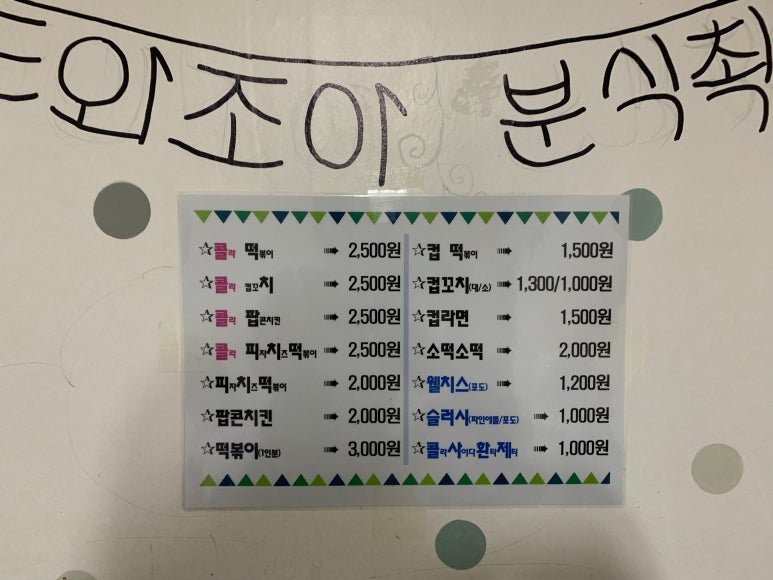 와조아 분식
☆콜라 떡볶이 ➠ 2,500원
☆콜라 컵꼬치 ➠ 2,500원
☆콜라 팝콘치킨 ➠ 2,500원
☆콜라 피자치즈떡볶이 ➠ 2,500원
☆피자치즈떡볶이 ➠ 2,000원
☆팝콘치킨 ➠ 2,000원
☆떡볶이(1인분) ➠ 3,000원
☆컵 떡볶이 ➠ 1,500원
☆컵꼬치(대/소) ➠ 1,300/1,000원
☆컵라면 ➠ 1,500원
☆소떡소떡 ➠ 2,000원
☆웰치스(포도) ➠ 1,200원
☆슬러시(파인애플/포도) ➠ 1,000원
☆콜라사이다환타제티 ➠ 1,000원